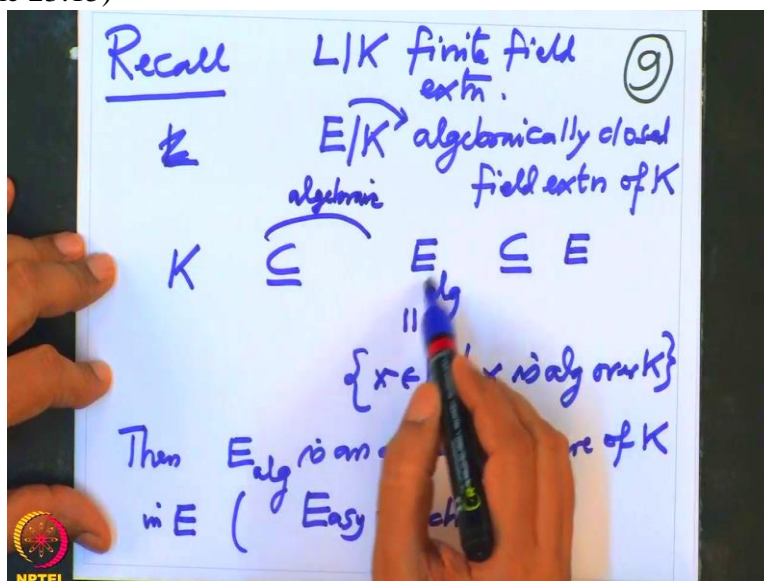 Recall L|K finite field ⑨
extn.
E|K algebraically closed
field extn of K
algebraic
K ⊆ E_alg ⊆ E
||
{x ∈ x is alg over K}
Then E_alg is an of K
in E ( Easy
NPTEL